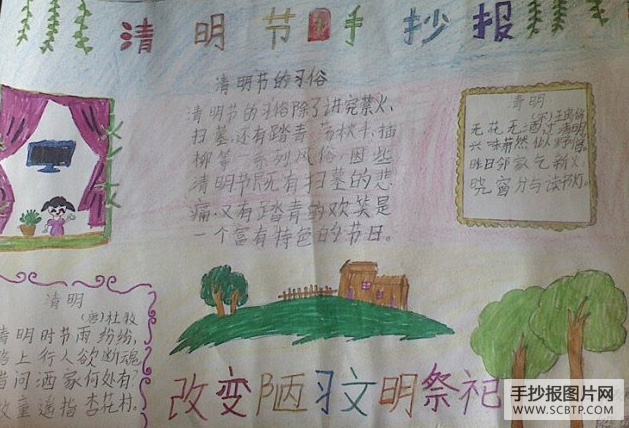 清明节手抄报
清明节的习俗
清明节的习俗除了讲究禁火、
扫墓,还有踏青、荡秋千、插
柳等一系列风俗,因些
清明节既有扫墓的悲
痛,又有踏青的欢笑是
一个富有特色的节日。
清明
无花无酒过清明
兴味萧然似野僧。
昨日邻家乞新火,
晓窗分与读书灯。
清明
(唐)杜牧
清明时节雨纷纷,
路上行人欲断魂
借问酒家何处有?
牧童遥指杏花村。
改变陋习文明祭祀
手抄报图片网
WWW.SCBTP.COM